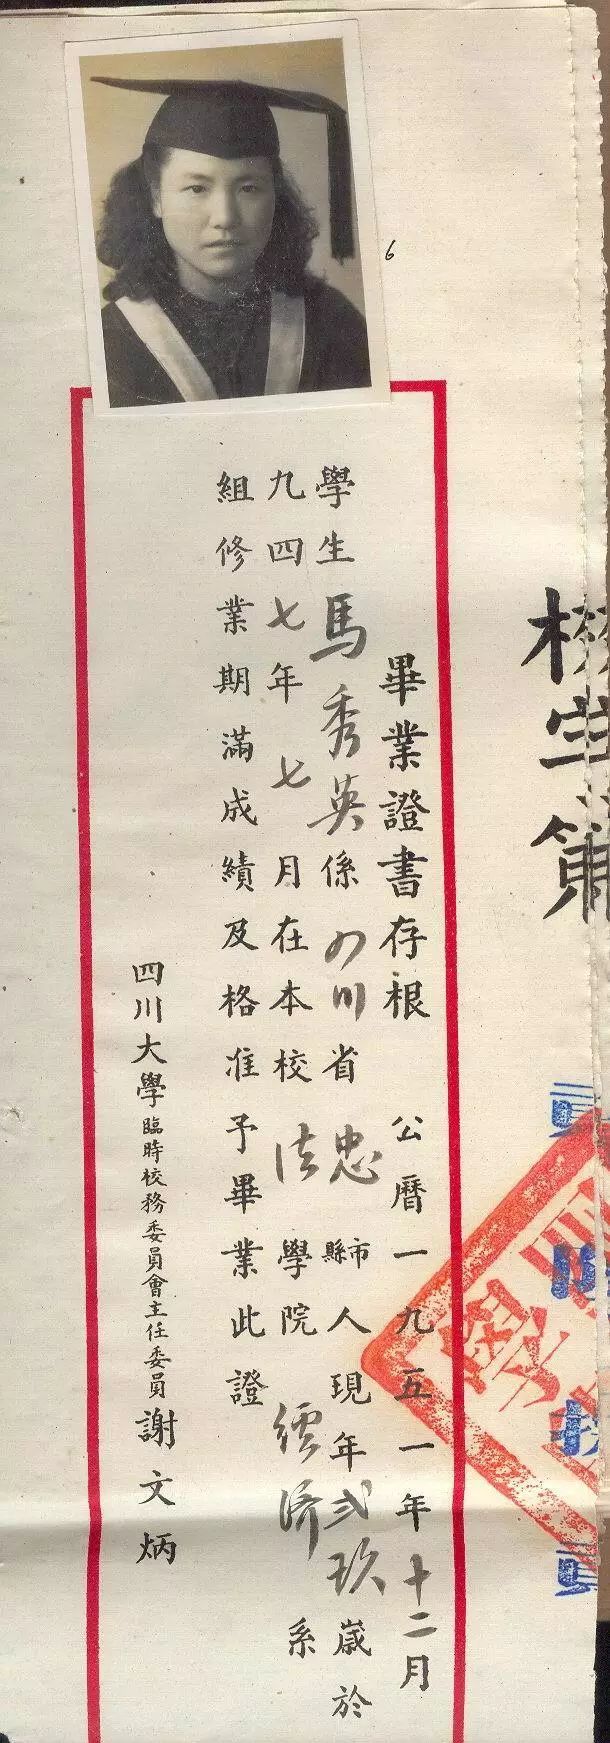 6
畢業證書存根 公曆一九五一年十二月
學生馬秀英係四川省忠市縣人現年弍玖歲於
九四七年七月在本校法學院經濟系
組修業期滿成績及格准予畢業此證
四川大學臨時校務委員會主任委員謝文炳